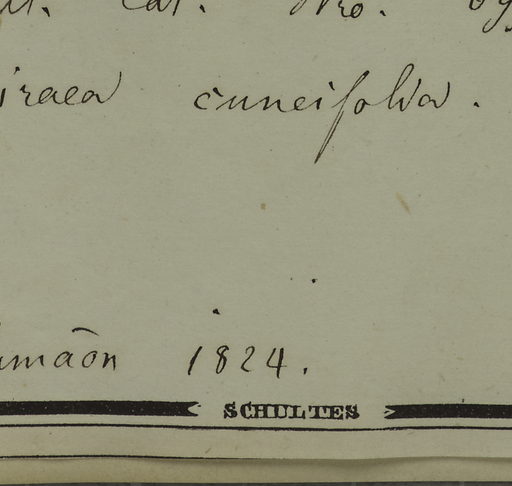 Cat. Nro.
iraea cuneifolia.
amāon 1824.
SCHULTES